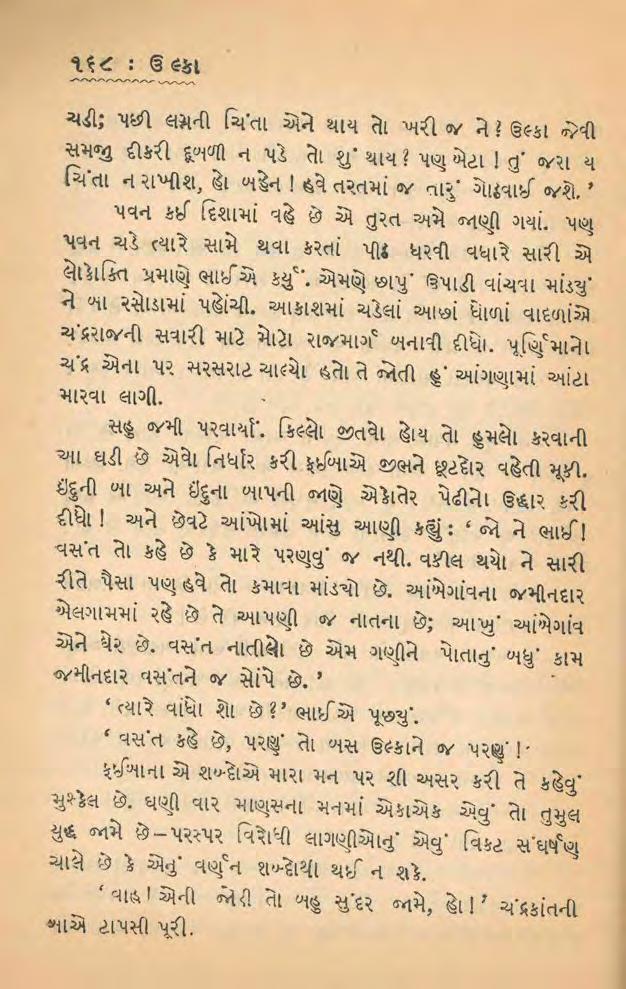 ૧૬૮ : ઉલ્કા
ચડી; પછી લગ્નની ચિંતા એને થાય તો ખરી જ ને? ઉલ્કા જેવી
સમજુ દીકરી દૂબળી ન પડે તો શું થાય? પણ બેટા ! તું જરા ય
ચિંતા ન રાખીશ, હો બહેન ! હવે તરતમાં જ તારું ગોઠવાઈ જશે.’
પવન કઈ દિશામાં વહે છે એ તુરત અમે જાણી ગયાં. પણ
પવન ચડે ત્યારે સામે થવા કરતાં પીઠ ધરવી વધારે સારી એ
લોકોક્તિ પ્રમાણે ભાઈએ કર્યું. એમણે છાપું ઉપાડી વાંચવા માંડયું
ને બા રસોડામાં પહોંચી. આકાશમાં ચડેલાં આછાં ધોળાં વાદળાંએ
ચંદ્રરાજની સવારી માટે મોટો રાજમાર્ગ બનાવી દીધો. પૂર્ણિમાનો
ચંદ્ર એના પર સરસરાટ ચાલ્યો હતો તે જોતી હું આંગણામાં આંટા
મારવા લાગી.
સહુ જમી પરવાર્યાં. કિલ્લો જીતવો હોય તો હુમલો કરવાની
આ ઘડી છે એવો નિર્ધાર કરી ફઈબાએ જીભને છૂટદોર વહેતી મૂકી.
ઇંદુની બા અને ઇંદુના બાપની જાણે એકોતેર પેઢીનો ઉદ્ધાર કરી
દીધો ! અને છેવટે આંખોમાં આંસુ આણી કહ્યું : ‘ જો ને ભાઈ !
વસંત તો કહે છે કે મારે પરણવું જ નથી. વકીલ થયો ને સારી
રીતે પૈસા પણ હવે તો કમાવા માંડ્યો છે. આંબેગાંવના જમીનદાર
એલગામમાં રહે છે તે આપણી જ નાતના છે; આખું આંબેગાંવ
એને ઘેર છે. વસંત નાતીલો છે એમ ગણીને પોતાનું બધું કામ
જમીનદાર વસંતને જ સોંપે છે.’
‘ ત્યારે વાંધો શો છે ?’ ભાઈએ પૂછયું.
‘ વસંત કહે છે, પરણું તો બસ ઉલ્કાને જ પરણું !’
ફઈબાના એ શબ્દોએ મારા મન પર શી અસર કરી તે કહેવું
મુશ્કેલ છે. ઘણી વાર માણસના મનમાં એકાએક એવું તો તુમુલ
યુદ્ધ જામે છે–પરસ્પર વિરોધી લાગણીઓનું એવું વિકટ સંઘર્ષણ
ચાલે છે કે એનું વર્ણન શબ્દોથી થઈ ન શકે.
‘ વાહ ! એની જોડી તો બહુ સુંદર જામે, હો !’ ચંદ્રકાંતની
બાએ ટાપસી પૂરી.